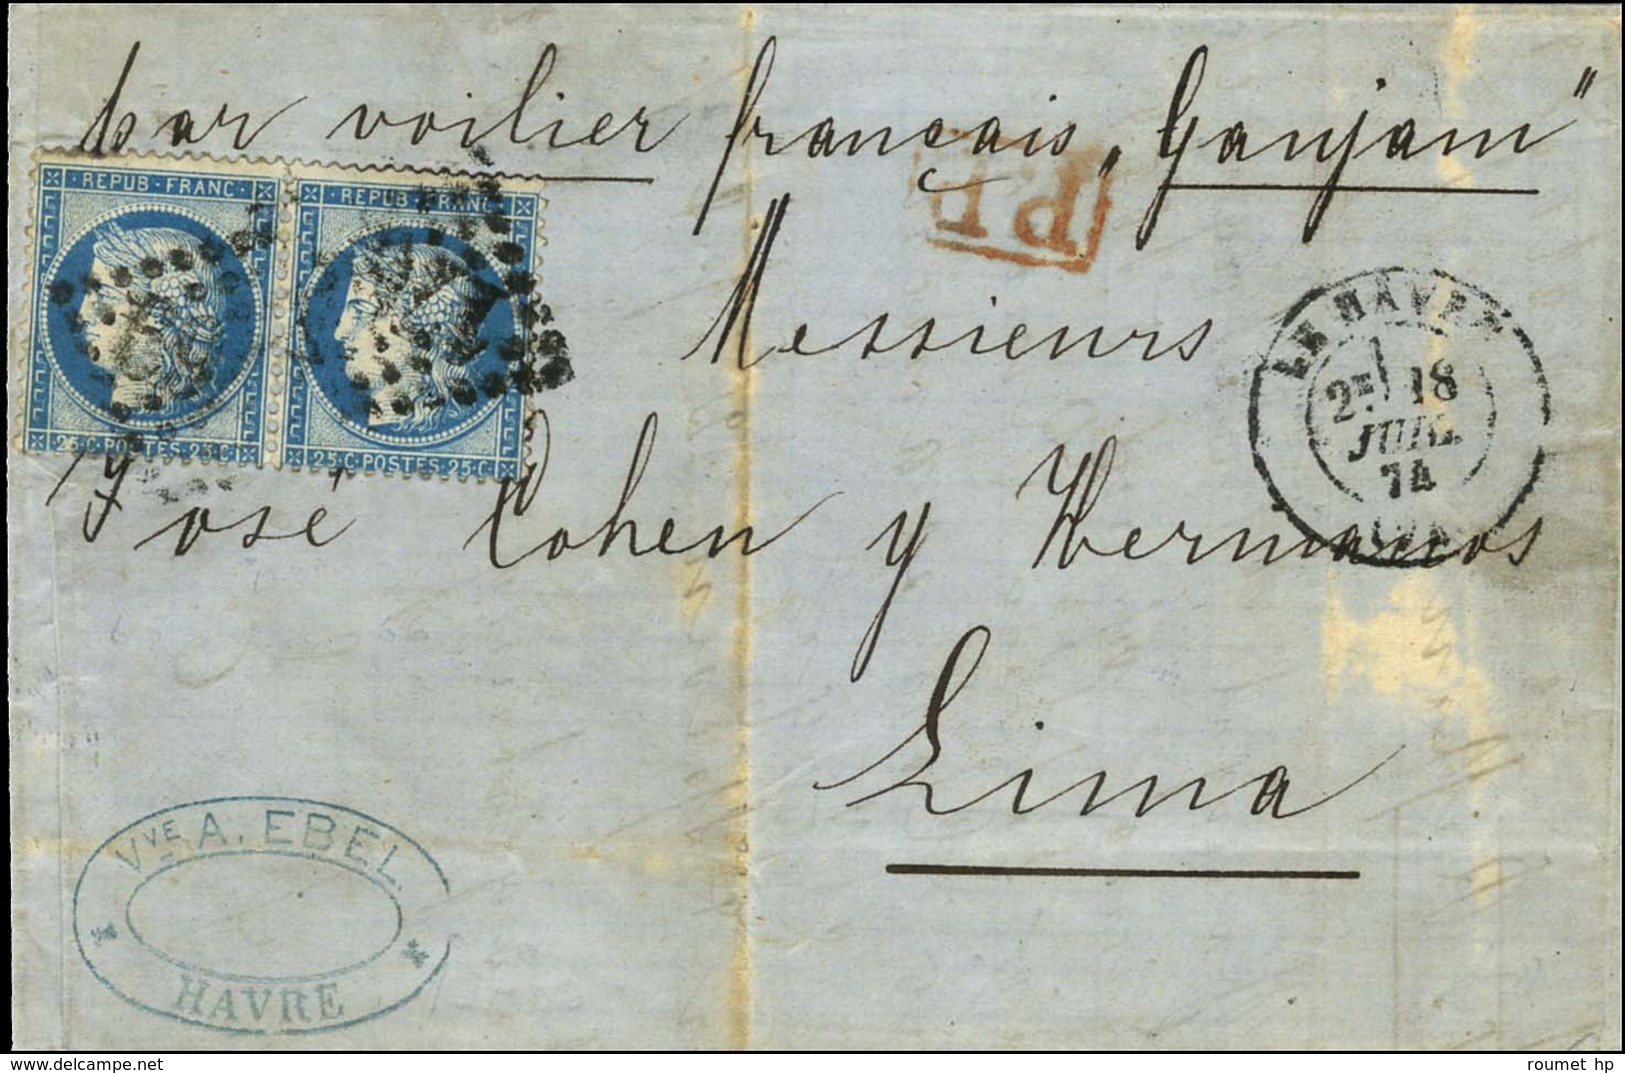 par voilier français „Ganjam"
REPUB·FRANC· REPUB·FRANC·
P.P.
Messieurs
LE HAVRE
2E 18
JUIL.
74
25·C·POSTES·25·C· 25·C·POSTES·25·C·
José Cohen y Hermanos
Lima
VVE A. EBEL
HAVRE
delcampe.net
roumet hp